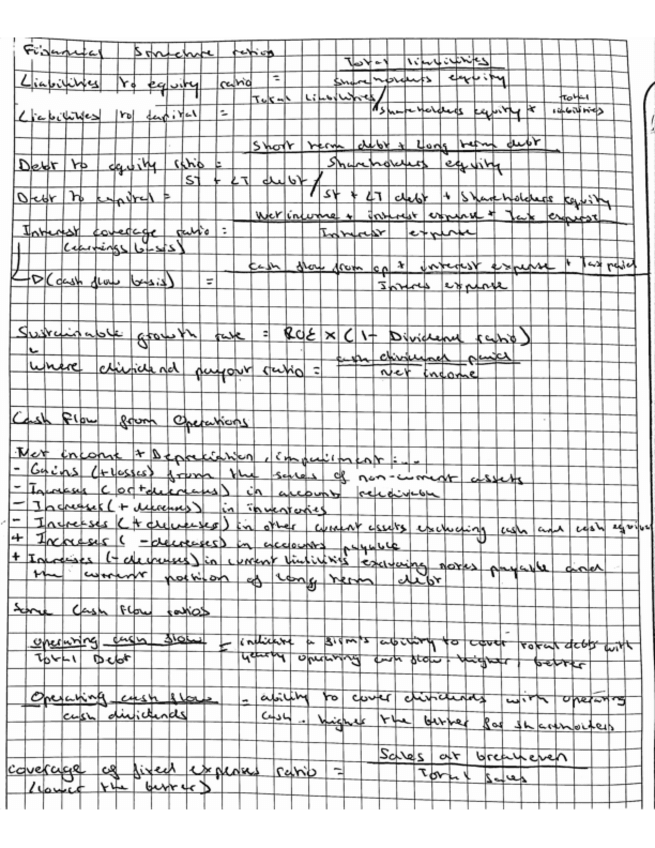 Financial Structure ratios
Liabilities to equity ratio = Total liabilities / Shareholders equity
Liabilities to capital = Total Liabilities / Shareholders equity + Total liabilities
Debt to equity ratio = Short term debt + Long term debt / Shareholders equity
Debt to capital = ST + LT debt / ST + LT debt + Shareholders equity
Interest coverage ratio = Net income + interest expense + Tax expense / Interest expense
(earnings basis)
(cash flow basis) = Cash flow from op + interest expense + Tax paid / Interes expense
Sustainable growth rate = ROE × (1 - Dividend ratio)
where dividend payout ratio = cash dividend paid / Net income
Cash Flow from Operations
Net income + Depreciation, impairment ...
- Gains (+losses) from the sales of non-current assets
- Increases (or + decreases) in accounts receivable
- Increases (+ decreases) in inventories
- Increases (+ decreases) in other current assets excluding cash and cash
+ Increases (- decreases) in accounts payable
+ Increases (- decreases) in current liabilities excluding notes payable and
the current position of long term debt
Some Cash Flow ratios
Operating cash flow / Total Debt = indicate a firm's ability to cover total debts with
yearly operating cash flow. higher, better
Operating cash flow / cash dividends = ability to cover dividends with operating
cash. higher the better for shareholders
coverage of fixed expenses ratio = Sales at breakeven / Total sales
(lower the better)